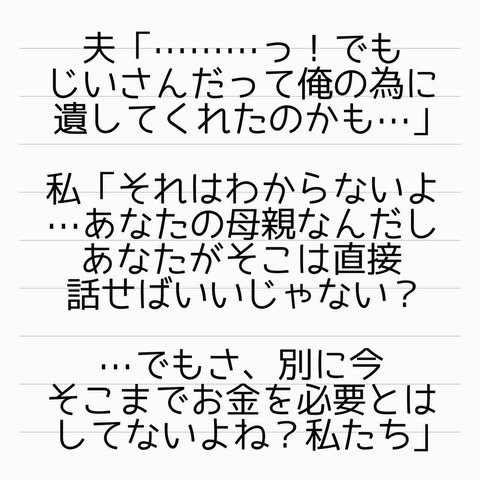 夫「………っ！でも
じいさんだって俺の為に
遺してくれたのかも…」
私「それはわからないよ
…あなたの母親なんだし
あなたがそこは直接
話せばいいじゃない？
…でもさ、別に今
そこまでお金を必要とは
してないよね？私たち」